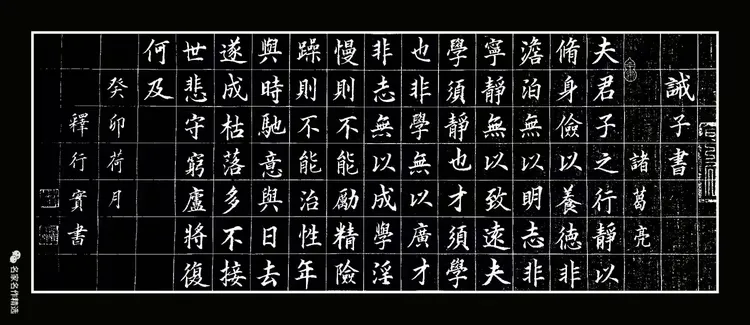 誡子書
諸葛亮
夫君子之行靜以
脩身儉以養德非
澹泊無以明志非
寧靜無以致遠夫
學須靜也才須學
也非學無以廣才
非志無以成學淫
慢則不能勵精險
躁則不能治性年
與時馳意與日去
遂成枯落多不接
世悲守窮廬將復
何及
癸卯荷月
釋行實書
名家名作精选